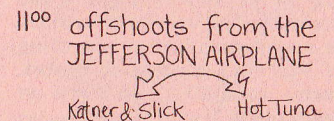 11⁰⁰ offshoots from the
JEFFERSON AIRPLANE
Katner & Slick Hot Tuna